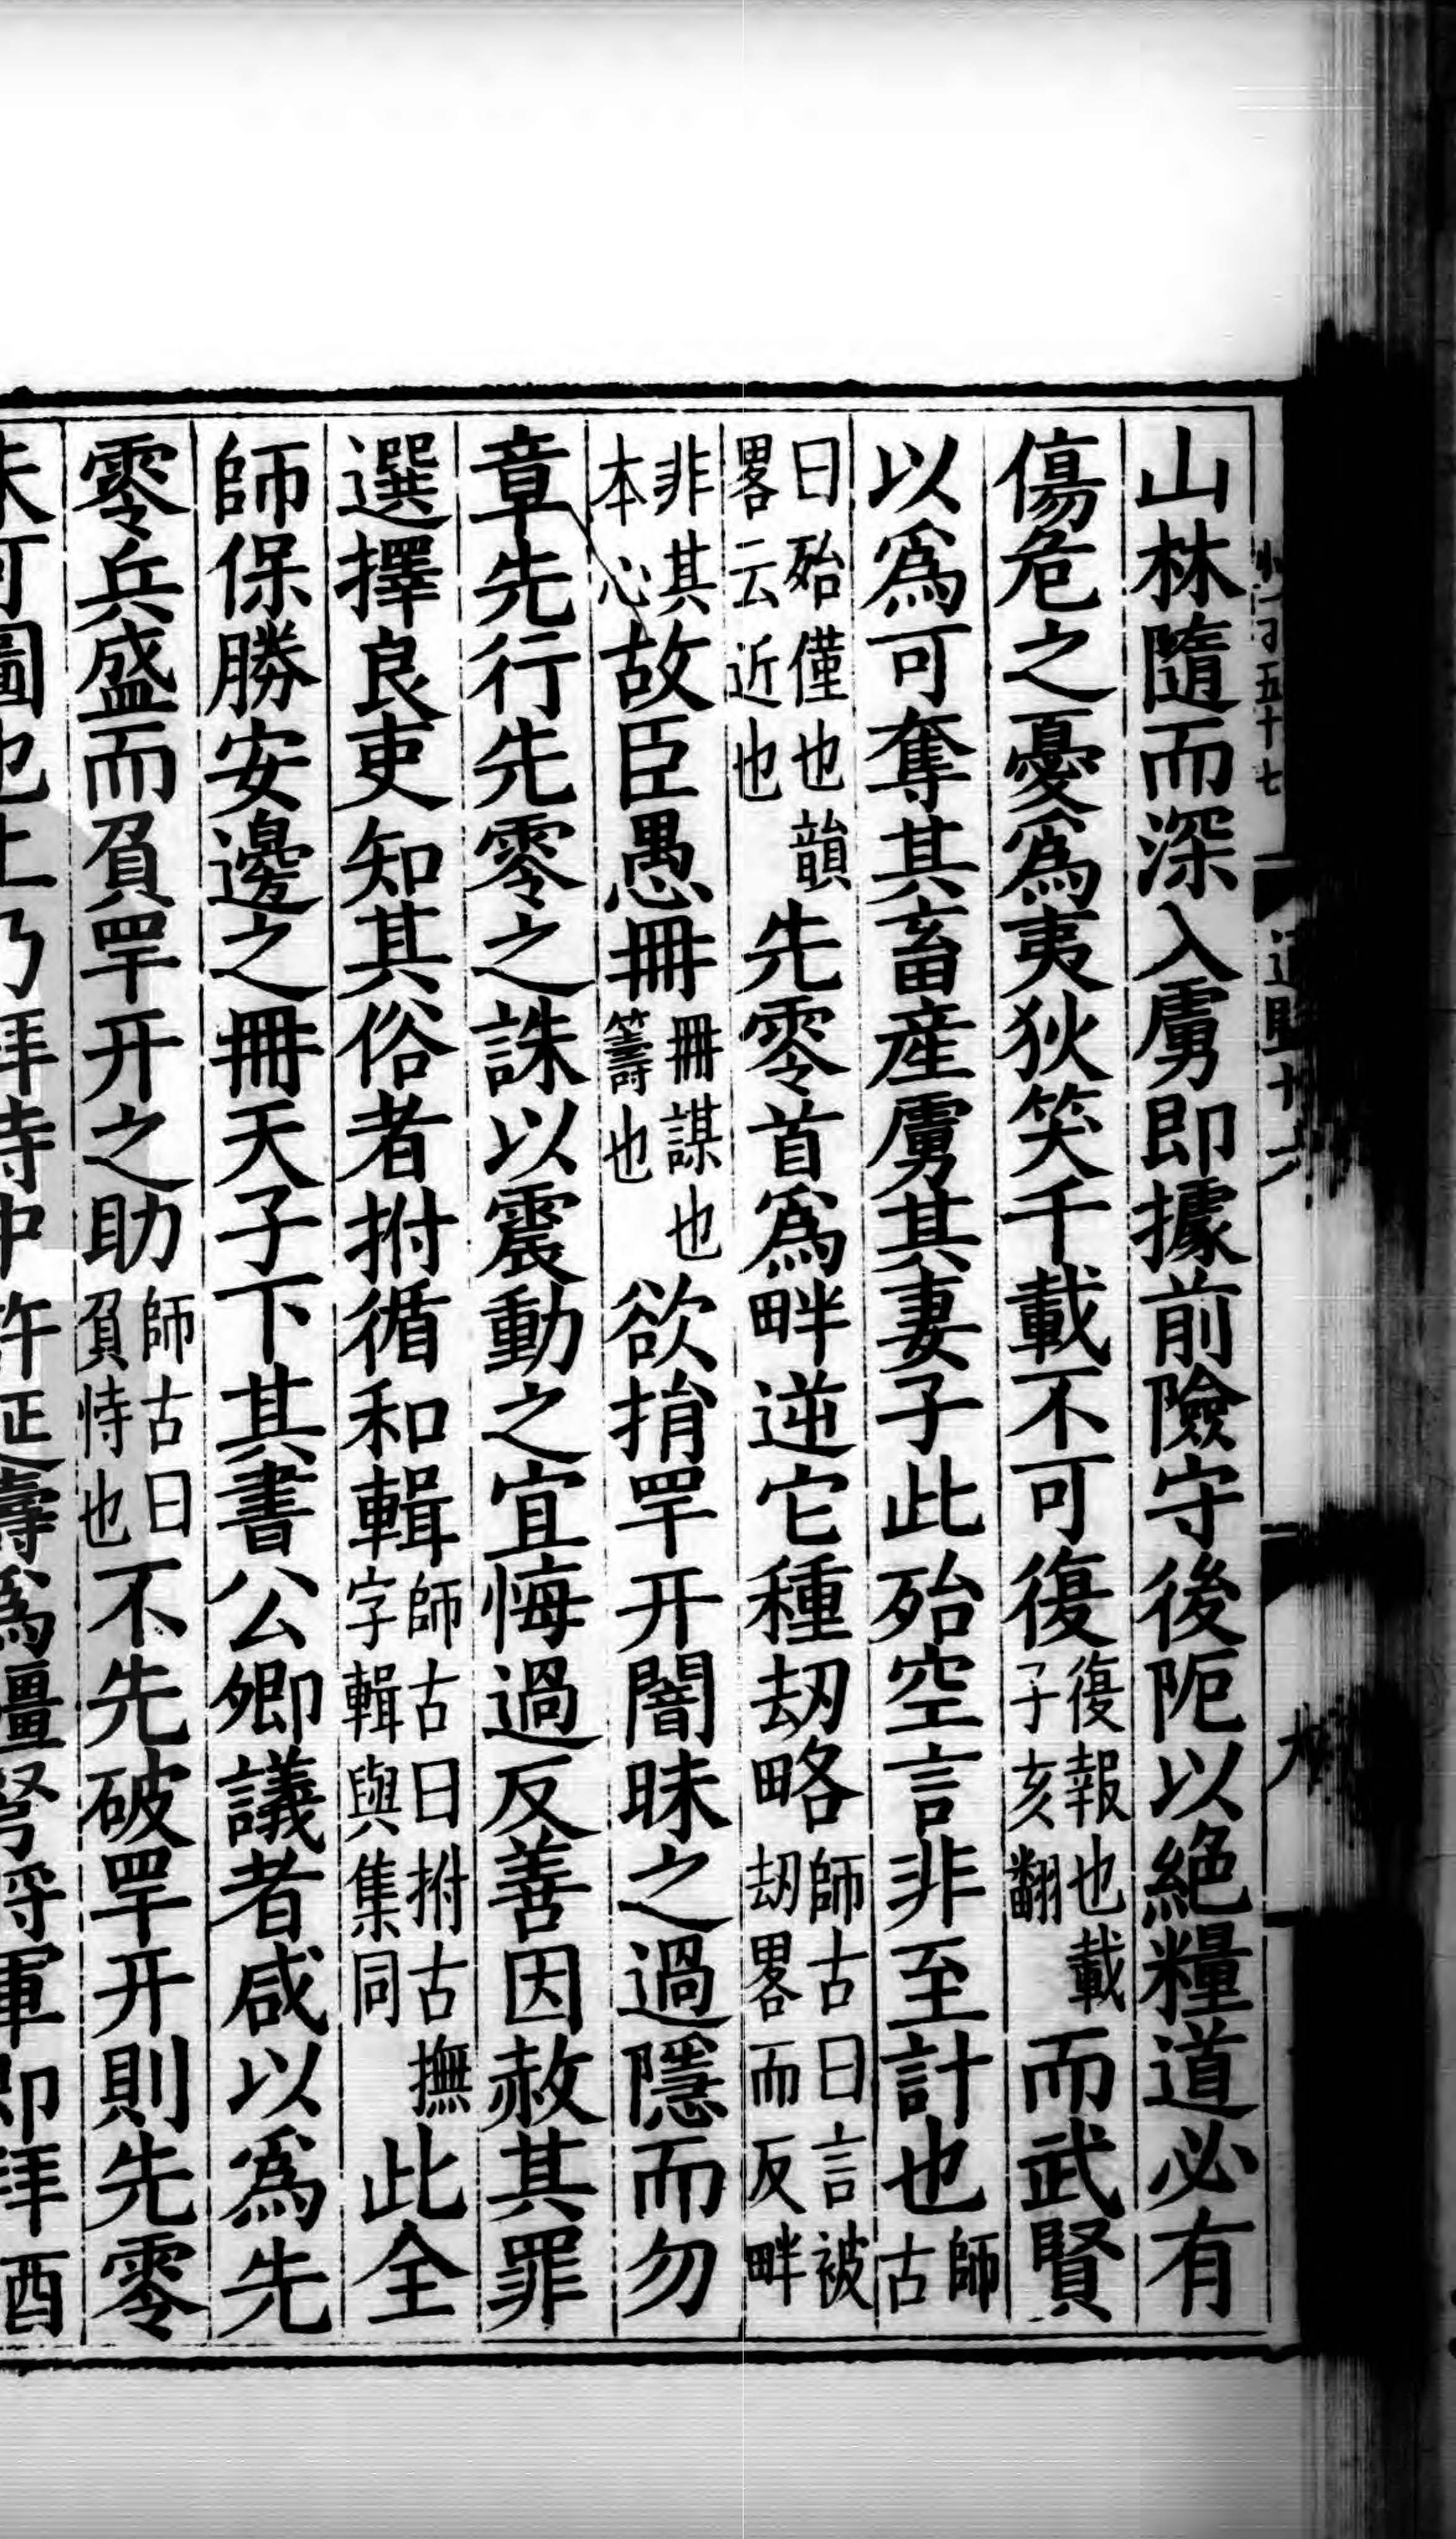 山林隨而深入虜即據前險守後阨以絕糧道必有
傷危之憂爲夷狄笑千載不可復復報也載子亥翻而武賢
以爲可奪其畜產虜其妻子此殆空言非至計也師古
曰殆僅也韻畧云近也先零首爲畔逆它種劫略師古曰言被劫畧而反畔
非其本心故臣愚冊冊謀也籌也欲捐罕幵闇昧之過隱而勿
章先行先零之誅以震動之宜悔過反善因赦其罪
選擇良吏知其俗者拊循和輯師古曰拊古撫字輯與集同此全
師保勝安邊之冊天子下其書公卿議者咸以爲先
零兵盛而負罕幵之助師古曰負恃也不先破罕幵則先零
未可圖也上乃拜侍中許延壽爲彊弩將軍即拜酒